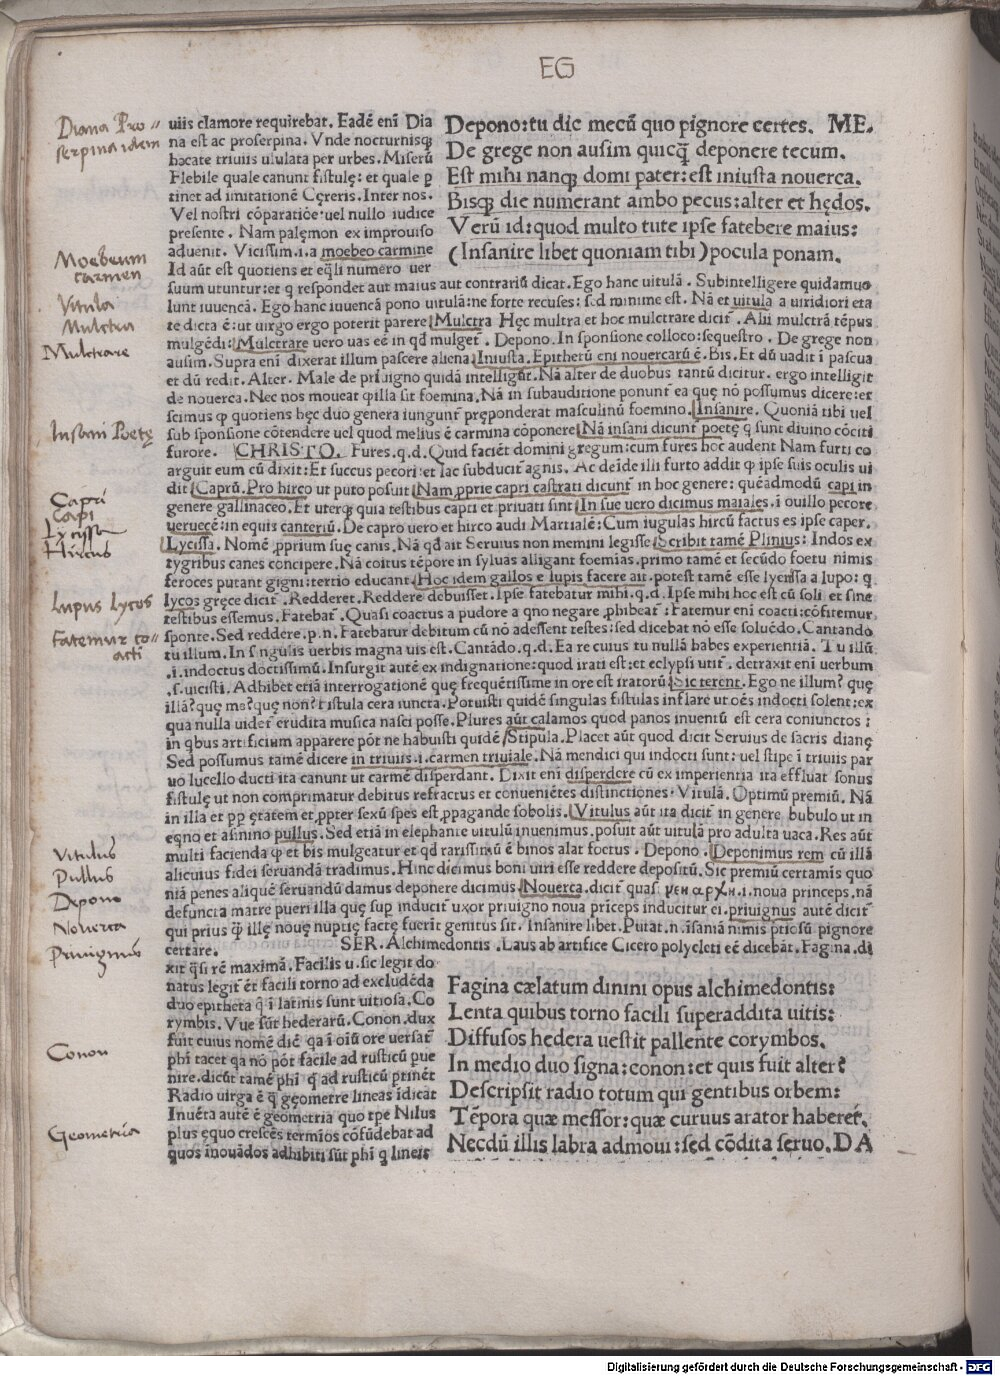 EG
Depono:tu dic mecũ quo pignore certes. ME.
De grege non ausim quicq̃ deponere tecum.
Est mihi nanq; domi pater:est iniusta nouerca.
Bisq; die numerant ambo pecus:alter et hędos.
Verũ id:quod multo tute ipse fatebere maius:
(Insanire libet quoniam tibi)pocula ponam.
uiis clamore requirebat. Eadẽ eni Dia
na est ac proserpina. Vnde nocturnisq;
hacate triuiis ululata per urbes. Miserũ
Flebile quale canunt fistulę: et quale p
tinet ad imitationẽ Cęreris. Inter nos.
Vel nostri cõparatiõe uel nullo iudice
presente. Nam palęmon ex improuiso
aduenit. Vicissum.i.a moebeo carmine
Id aũt est quotiens et eq̃li numero uer
suum utuntur:et q respondet aut maius aut contrariũ dicat. Ego hanc uitulã. Subintelligere quidamuo
lunt iuuencã. Ego hanc iuuencã pono uitulã:ne forte recuses: sed minime est. Nã et uitula a uiridiori eta
te dicta ẽ:ut uirgo ergo poterit parere Mulctra Hęc multra et hoc mulctrare dicit. Alii mulctrã tẽpus
mulgẽdi: Mulctrare uero uas eẽ in qd mulget. Depono. In sponsione colloco:sequestro. De grege non
ausim. Supra eni dixerat illum pascere aliena Iniusta. Epithetũ eni nouercarũ ẽ. Bis. Et dũ uadit i pascua
et dũ redit. Alter. Male de priuigno quidã intelligũt. Nã alter de duobus tantũ dicitur. ergo intelligit
de nouerca. Nec nos moueat q̃ illa sit foemina. Nã in subauditione ponunt ea quę nõ possumus dicere:et
scimus q̃ quotiens hęc duo genera iungunt pręponderat masculinũ foemino. Insanire. Quoniã tibi uel
sub sponsione cõtendere uel quod melius ẽ carmina cõponere Nã insani dicunt poetę q sunt diuino cõciti
furore. CHRISTO. Fures.q.d. Quid faciẽt domini gregum:cum fures hoc audent Nam furti co
arguit eum cũ dixit:Et succus pecori:et lac subducit agnis. Ac deide illi furto addit q̃ ipse suis oculis ui
dit Caprũ. Pro hirco ut puto posuit Nam pprie capri castrati dicunt in hoc genere: quẽadmodũ capi in
genere gallinaceo. Et uterq; quia testibus capti et priuati sint In sue uero dicimus maiales.i ouillo pecore
ueruecẽ:in equis canteriũ. De capro uero et hirco audi Martialẽ:Cum iugulas hircũ factus es ipse caper.
Lycissa. Nomẽ pprium suę canis. Nã qd ait Seruius non memini legisse Scribit tamẽ Plinius: Indos ex
tygribus canes concipere. Nã coitus tẽpore in syluas alligant foemias.primo tamẽ et secũdo foetu nimis
feroces putant gigni:tertio educant Hoc idem gallos e lupis facere ait.potest tamẽ esse lycissa a lupo: q
lycos gręce dicit. Redderet. Reddere debuisset. Ipse fatebatur mihi.q.d. Ipse mihi hoc est cũ soli et sine
testibus essemus. Fatebat. Quasi coactus a pudore a qno negare phibeat: Fatemur eni coacti:cõfitemur
sponte. Sed reddere.p.n. Fatebatur debitum cũ nõ adessent testes:sed dicebat nõ esse soluẽdo. Cantando
tu illum. In singulis uerbis magna uis est. Cantãdo.q.d. Ea re cuius tu nullã habes experientiã. Tu illũ
.i.indoctus doctissimũ. Insurgit autẽ ex indignatione:quod irati est:et eclypsi utit. detraxit eni uerbum
.s.uicisti. Adhibet etiã interrogationẽ quę frequẽtissime in ore est iratorũ Sic terent. Ego ne illum? quę
illã?quę me?quę non? Fistula cera iuncta. Potuisti quidẽ singulas fistulas inflare ut oẽs indocti solent:ex
qua nulla uidet erudita musica nasci posse. Plures aũt calamos quod panos inuentũ est cera coniunctos:
in qbus artificium apparere põt ne habuisti quidẽ Stipula. Placet aũt quod dicit Seruius de sacris dianę
Sed possumus tamẽ dicere in triuiis.i.carmen triuiale. Nã mendici qui indocti sunt: uel stipe i triuiis par
uo lucello ducti ita canunt ut carmẽ disperdant. Dixit eni disperdere cũ ex imperientia ita effluat sonus
fistulę ut non comprimatur debitus refractus et conueniẽtes distinctiones. Vitulã. Optimũ premiũ. Nã
in illa et pp ętatem et ppter sexũ spes est ppagande sobolis. Vitulus aũt ita dicit in genere bubulo ut in
eqno et asinino pullus. Sed etiã in elephante uitulũ inuenimus. posuit aũt uitulã pro adulta uaca. Res aũt
multi facienda q̃ et bis mulgeatur et qd rarissimũ ẽ binos alat foetus. Depono. Deponimus rem cũ illã
alicuius fidei seruandã tradimus. Hinc dicimus boni uiri esse reddere depositũ. Sic premiũ certamis quo
niã penes aliquẽ seruandũ damus deponere dicimus Nouerca.dicit quasi μεη αρχη.i.noua princeps.nã
defuncta matre pueri illa quę sup inducit uxor priuigno noua prĩceps inducitur ei.priuignus autẽ dicit
qui prius q̃ illę nouę nuptię factę fuerit genitus sit. Insanire libet. Putat.n.isaniã nimis prtiosũ pignore
certare. SER. Alchimedontis. Laus ab artifice Cicero polycleti eẽ dicebat. Fagina.di
xit q̃si rẽ maximã. Facilis u.sic legit do
natus legit ẽt facili torno ad excludẽda
duo epitheta q̃ i latinis sunt uitiosa. Co
rymbis. Vue sũt hederarũ. Conon.dux
fuit cuius nomẽ dic qa i oiũ ore uersat
phi tacet qa nõ põt facile ad rusticũ pue
nire.dicũt tamẽ phi q ad rusticũ prinẽt
Radio uirga ẽ q̃ gęometre lineas idicat
Inuẽta autẽ ẽ geometria quo tpe Nilus
plus ęquo crescẽs termios cõfũdebat ad
quos inouãdos adhibiti sũt phi q lineis
Fagina cælatum dinini opus alchimedontis:
Lenta quibus torno facili superaddita uitis:
Diffusos hędera uestit pallente corymbos.
In medio duo signa:conon:et quis fuit alter?
Descripsit radio totum qui gentibus orbem:
Tẽpora quæ messor:quæ curuus arator haberet.
Necdũ illis labra admoui:sed cõdita seruo. DA
Diana Pro=
serpina idem
Moebeum
carmen
Vitula
Mulctra
Mulctrare
Insani Poetę
Capri
Capi
Lycissa
Hircus
Lupus Lycos
Fatemur co=
acti
Vitulus
Pullus
Depono
Noverca
Privignus
Conon
Geometria
Digitalisierung gefördert durch die Deutsche Forschungsgemeinschaft - DFG